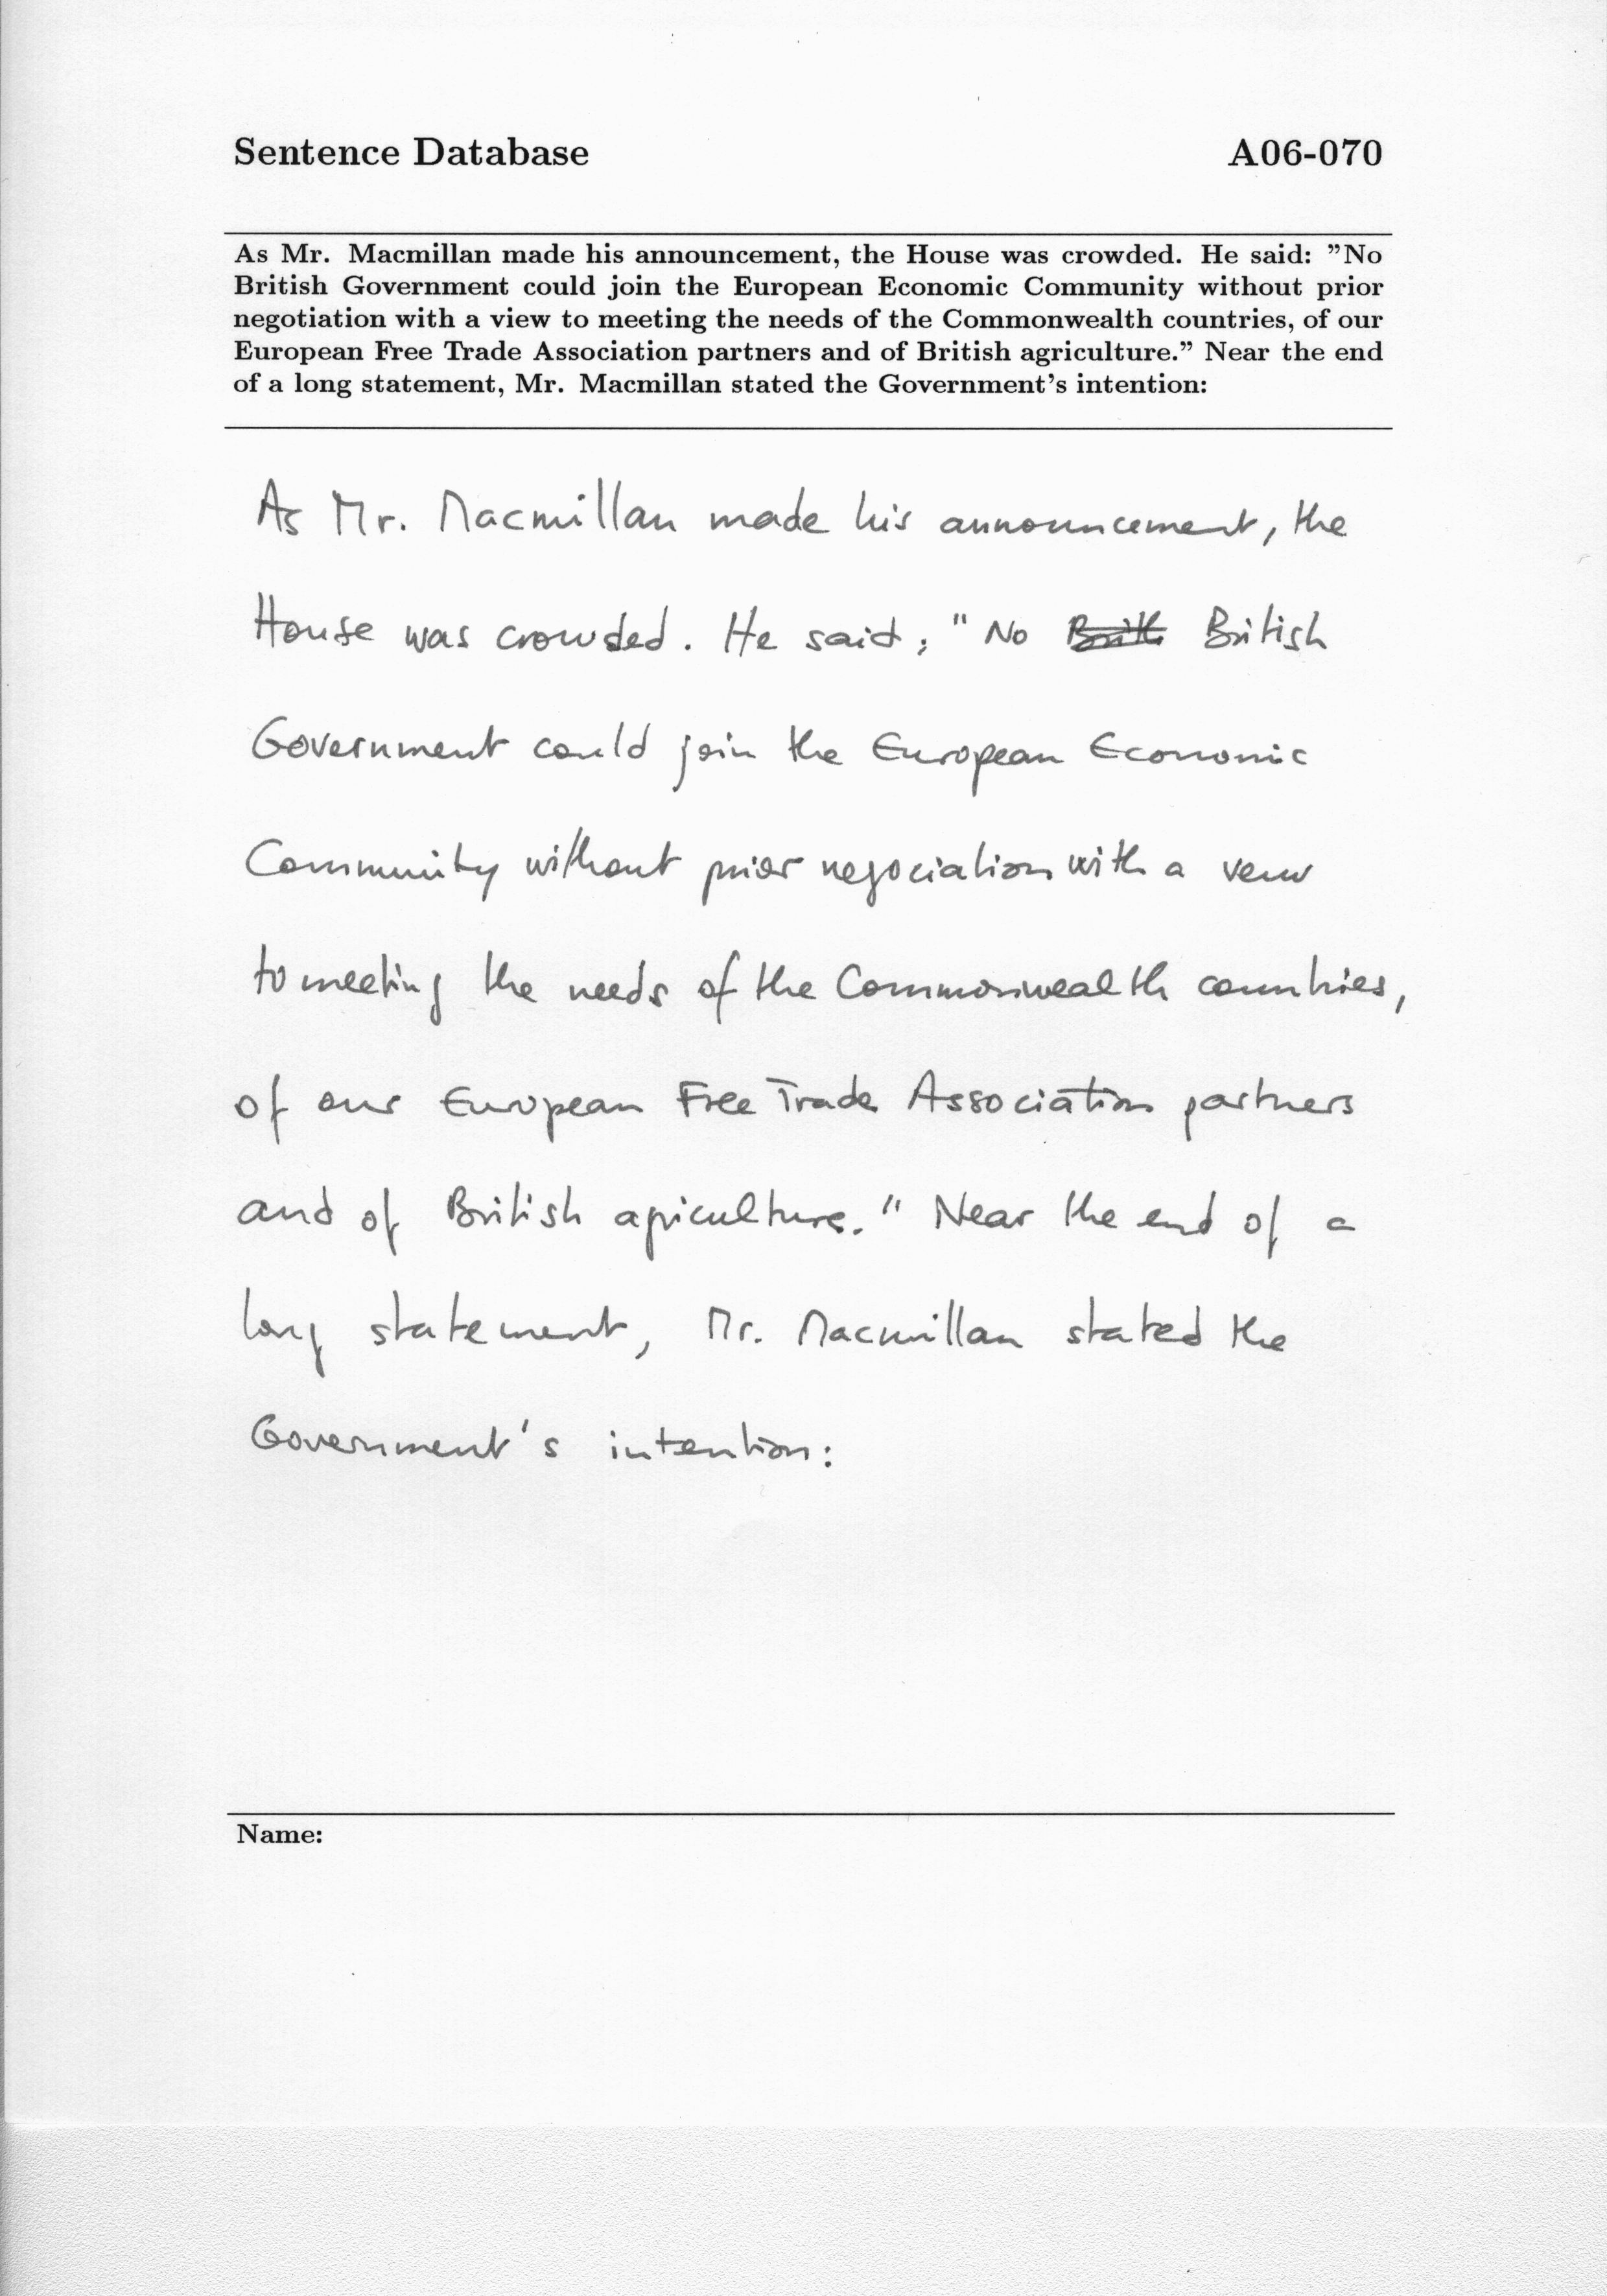 Sentence Database A06-070
As Mr. Macmillan made his announcement, the House was crowded. He said: ”No
British Government could join the European Economic Community without prior
negotiation with a view to meeting the needs of the Commonwealth countries, of our
European Free Trade Association partners and of British agriculture.” Near the end
of a long statement, Mr. Macmillan stated the Government’s intention:
As Mr. Macmillan made his announcement, the
House was crowded. He said: "No British
Government could join the European Economic
Community without prior negociation with a veiw
to meeting the needs of the Commonwealth countries,
of our European Free Trade Association partners
and of British agriculture." Near the end of a
long statement, Mr. Macmillan stated the
Government's intention:
Name: